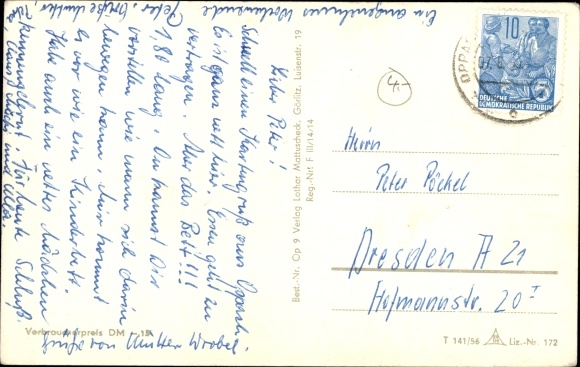 Lieber Peter!
Schnell einen Kartengruß aus Oppach.
Es ist ganz nett hier. Essen geht zu
ertragen. Aber das Bett!!!
1,80 lang. Du kannst Dir
vorstellen wie man sich darin
bewegen kann. Mir kommt
es vor wie ein Kinderbett.
Habe auch ein nettes Mädchen
kennengelernt. Für heute Schluß.
Grüße von Mutter Wrobel
Ein angenehmes Wochenende
Peter, Grüße
Best.-Nr. Op 9 Verlag Lothar Mattuscheck, Görlitz, Luisenstr. 19
Reg.-Nr. F III/14/14
4,-
OPPA
10
DEUTSCHE
DEMOKRATISCHE REPUBLIK
Herrn
Peter Pöckel
Dresden A 21
Hofmannstr. 20 I
Verbraucherpreis DM -,15
T 141/56 Liz.-Nr. 172